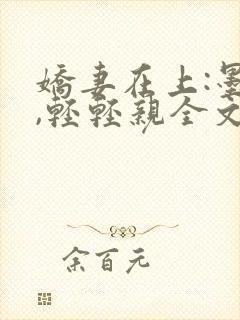 嬌妻在上:墨
,輕輕親全文
余百元